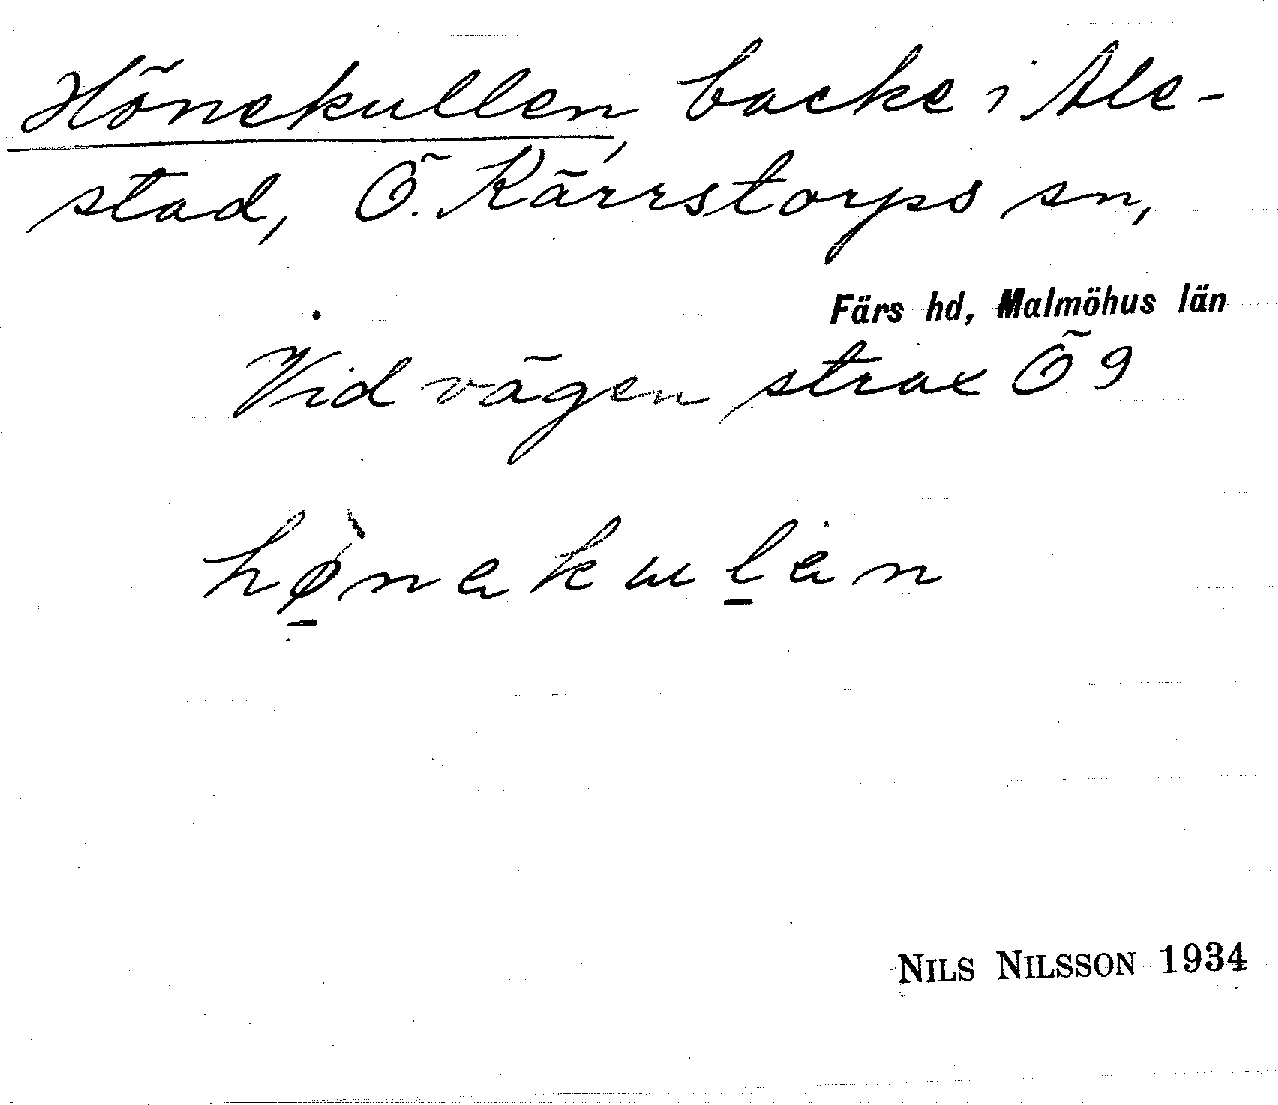 Hönekullen, backe i Ale-
stad, Ö. Kärrstorps sn,
Färs hd, Malmöhus län
Vid vägen strax Ö 9
hø̀nəkuləən
NILS NILSSON 1934